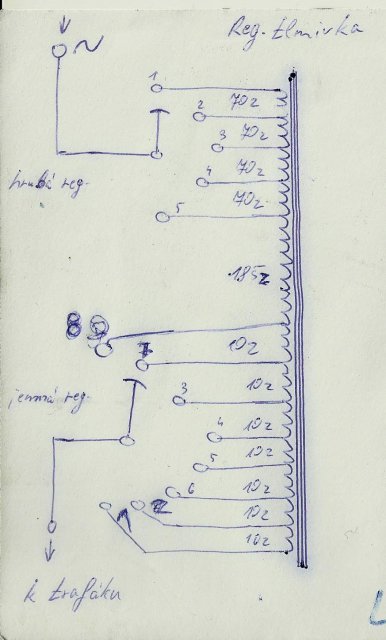 Reg. tlmivka
~
1
70z
2
70z
3
70z
4
70z
5
hrubá reg.
185z
8
10z
7
10z
jemná reg.
3
10z
4
10z
5
10z
6
10z
2
10z
1
k trafáku